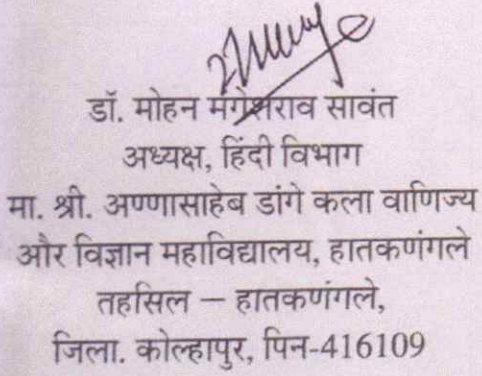 डॉ. मोहन मंगेशराव सावंत
अध्यक्ष, हिंदी विभाग
मा. श्री. अण्णासाहेब डांगे कला वाणिज्य
और विज्ञान महाविद्यालय, हातकणंगले
तहसिल – हातकणंगले,
जिला. कोल्हापुर, पिन-416109